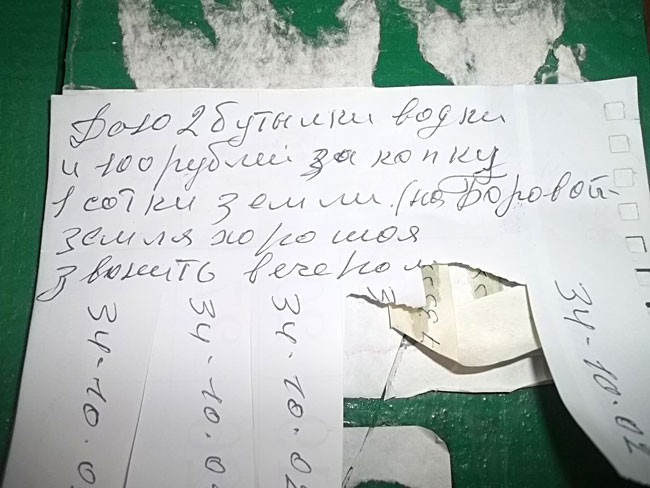 Даю 2 бутылки водки
и 100 рублей за копку
1 сотки земли. (на Боровой-
земля хорошая
звонить вечером
34-10.0
34-10.0
34-10.02
34-10.02